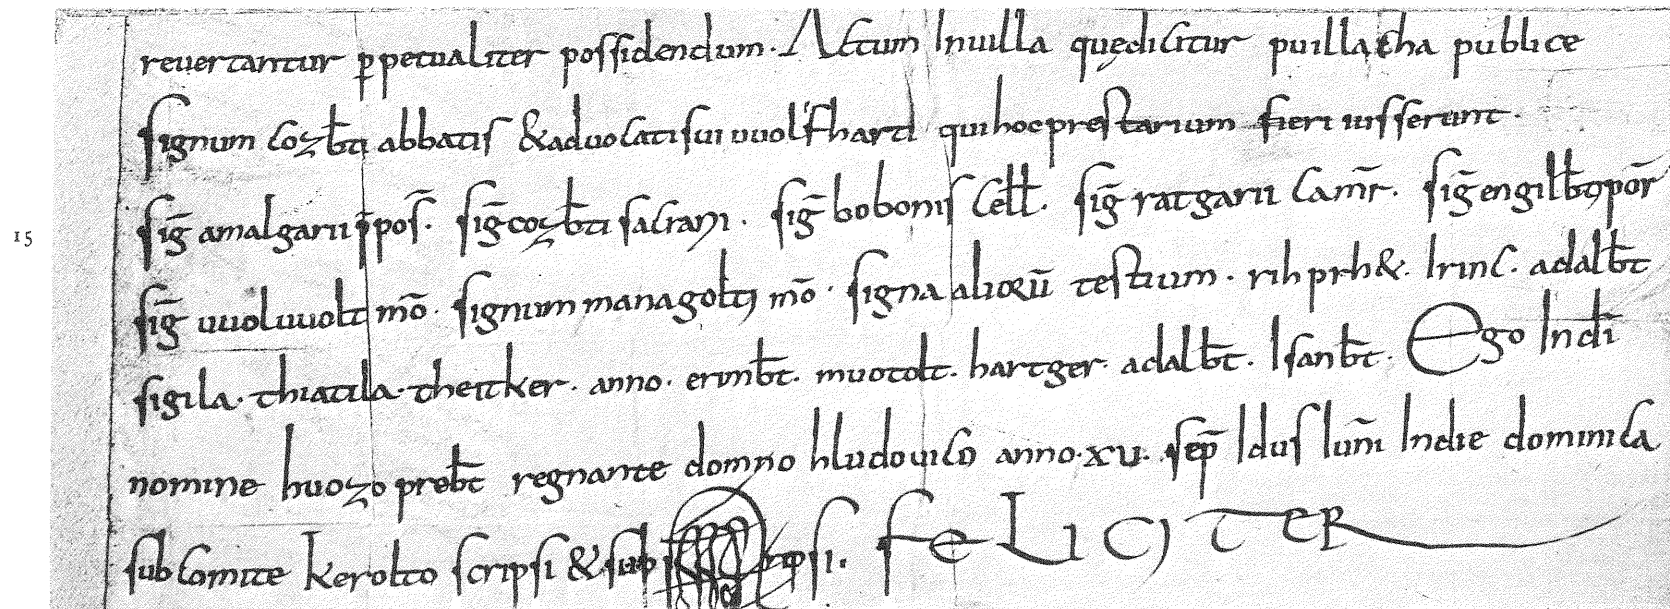 reuertantur p̱petualiter possidendum. Actum Inuilla quędicitur puillacha publice
signum cozb̄ti abbatis &aduocatisui uuolfhardi quihocprestarium fieri iusserunt.
siḡ amalgarii p̄pos̄. siḡ cozb̄ti sacratarii. siḡ bobonis cełł. siḡ ratgarii cam̄r. siḡ engilb̄ti por̄
15
siḡ uuoluuolti mō. signum managolti mō. signa aliorū testium. rihprh&. Irinc. adalb̄t
sigila. thiatila. theitker. anno. erimb̄t. muotolt. hartger. adalb̄t. Isanb̄t. Ego Indī
nomine huozo preb̄t regnante domno hludouico anno. xu. sep̄ Idus Iun̄i Indie dominica
subcomite kerolto scripsi &subscripsi. FELICITER